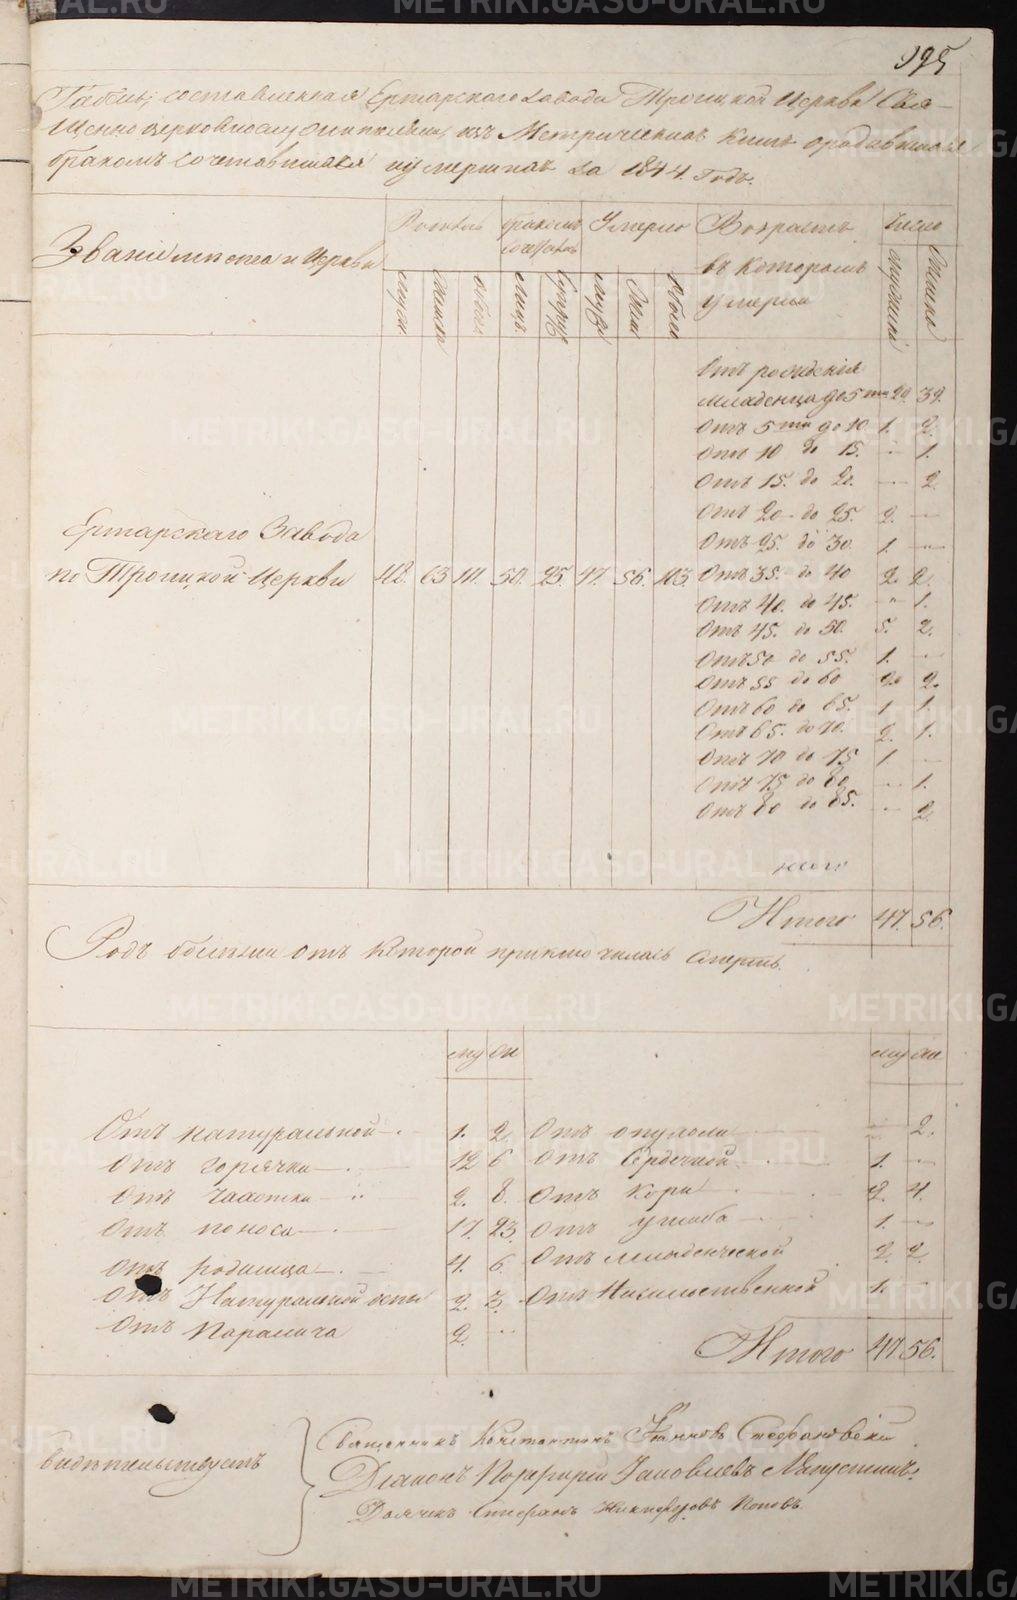 995
Табель, составленная Ертарскаго завода Троицкой Церкви Свя-
щенно церковнослужителями, изъ Метрическихъ книгъ о родившихся
бракомъ сочетавшихся и умершихъ за 1844. годъ.
Званіе места и Церкви
Родились
бракомъ сочетались
Умерло
Возрастъ въ которомъ умерли
Число
муж.
женска
обоего
лицъ.
супруж.
муж.
жен.
обоего
мужеска
женска
Ертарскаго Завода
по Троицкой Церкви 48. 63 111. 50. 25. 47. 56. 103.
Отъ рожденія
младенца до 5ти 29. 39.
Отъ 5ти до 10. 1. 2.
Отъ 10 до 15. — 1.
Отъ 15. до 20. — 2
Отъ 20 до 25. 2. —
Отъ 25. до 30. 1. —
Отъ 35. до 40 2. 2.
Отъ 40. до 45. — 1.
Отъ 45. до 50. 5. 2.
Отъ 50 до 55. 1. —
Отъ 55 до 60 2. 2.
Отъ 60 до 65. 1 1.
Отъ 65. до 70. 2. 1.
Отъ 70 до 75 1. —
Отъ 75 до 80 — 1.
Отъ 80 до 85. — 2
Итого 47. 56.
Родъ болезни отъ которой приключилась смерть.
му же му же
Отъ натуральной 1. 2 Отъ опухоли — 2.
Отъ горячки 12 6 Отъ Сердечной 1. —
Отъ чахотки 2. 8. Отъ кори 2. 4.
Отъ поноса 17. 23. Отъ ушиба 1. —
Отъ родимца 4. 6. Отъ младенческой 2. 2.
Отъ Натуральной оспы 2. 3. Отъ
1. —
Отъ Паралича 2. —
Итого 47 56.
Свидетельствуютъ
Священникъ Константинъ Іоанновъ Стефановскій
Діаконъ Порфирій Іаковлевъ Лапустинъ.
Дьячекъ Стефанъ Никифоровъ Поповъ
METRIKI.GASO-URAL.RU